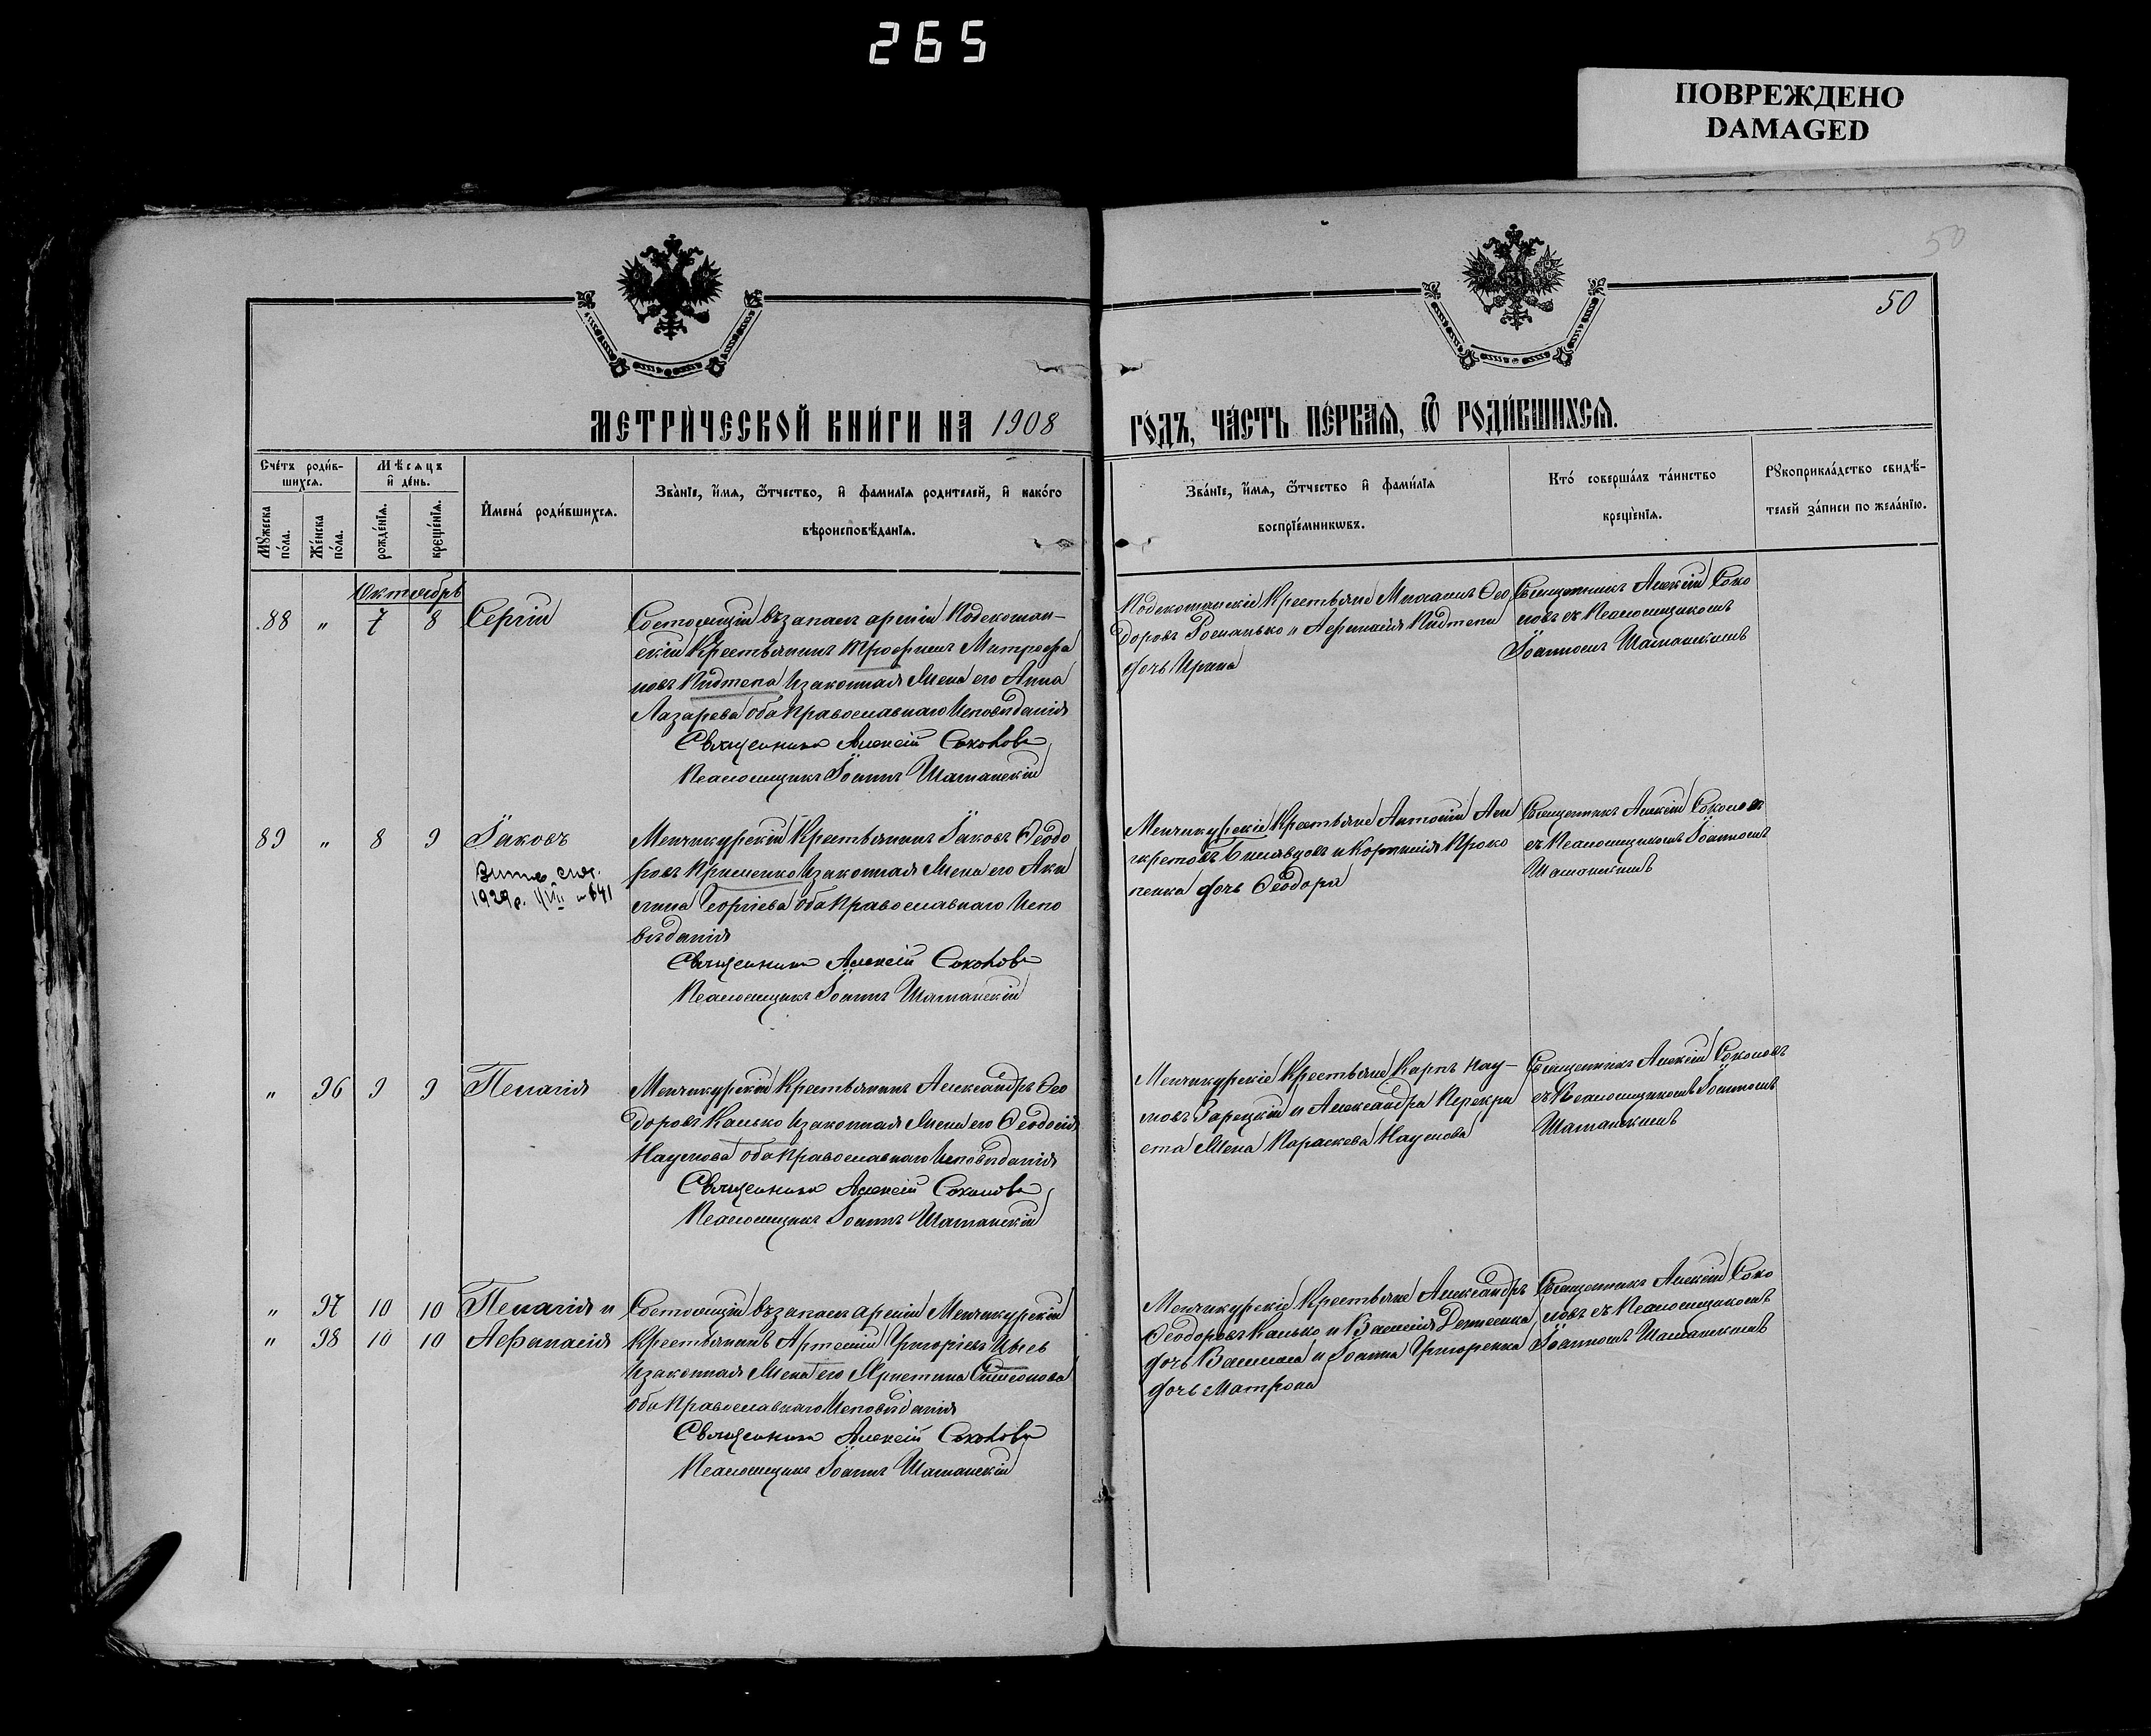 265
ПОВРЕЖДЕНО
DAMAGED
50
50
МЕТРИ́ЧЕСКОЙ КНИ́ГИ НА 1908
ГО́ДЪ, ЧА́СТЬ ПЕ́РВАЯ, Ѿ РОДИ́ВШИХСЯ.
Сче́тъ роди́в-
шихся.
Мѣ́сяцъ
и҆ де́нь.
Мꙋ́жеска
по́ла.
Же́нска
по́ла.
рожде́нїя.
креще́нїя.
И҆мена̀ роди́вшихся.
Зва́нїе, и҆́мя, ѻ҆́тчество, и҆ фамилїя родителей, и҆ како́го
вѣроисповѣ́данїя.
Зва́нїе, и҆́мя, ѻ҆́тчество и҆ фами́лїя
воспрїе́мникѡвъ.
Кто̀ соверша́лъ та́инство
креще́нїя.
Рꙋкоприкла́дство свидѣ́-
телей за́писи по жела́нїю.
Октябрь
88 " 7 8 Сергій
Состоящій въ запасѣ арміи
скій Крестьянинъ Трофимъ Митрофа
новъ Пидтепа и законная жена его Анна
Лазарева оба Православнаго Исповѣданія
Священникъ Алексій Соколовъ
Псаломщикъ Іоаннъ Шатанскій
Крестьяне Михаилъ Ѳео
доровъ Романько и Аѳанасія Пидтепы
дочь Ирина
Священникъ Алексій Соко
ловъ съ Псаломщикомъ
Іоанномъ Шатанскимъ
89 " 8 9 Іаковъ
1929р. №641
Менчикурскій Крестьянинъ Іаковъ Ѳеодо
ровъ Клименко и законная жена его Аки
лина Георгіева оба Православнаго Испо
вѣданія
Священникъ Алексій Соколовъ
Псаломщикъ Іоаннъ Шатанскій
Менчикурскіе Крестьяне Антоній
и Корнилія Проко
пенка дочь Ѳеодора
Священникъ Алексій Соколовъ
съ Псаломщикомъ Іоанномъ
Шатанскимъ
" 96 9 9 Пелагія
Менчикурскій Крестьянинъ Александръ Ѳео
доровъ Калько и законная жена его Ѳеодосія
Наумова оба Православнаго Исповѣданія
Священникъ Алексій Соколовъ
Псаломщикъ Іоаннъ Шатанскій
Менчикурскіе Крестьяне Карпъ Нау-
мовъ Зарецкій и Александра Перехри
ста жена Параскева Наумова
Священникъ Алексій Соколовъ
съ Псаломщикомъ Іоанномъ
Шатанскимъ
" 97 10 10 Пелагія и
" 98 10 10 Аѳанасія
Состоящій въ запасѣ арміи Менчикурскій
Крестьянинъ Артемій Григорьевъ
и законная жена его Христина Симеонова
оба Православнаго Исповѣданія
Священникъ Алексій Соколовъ
Псаломщикъ Іоаннъ Шатанскій
Менчикурскіе Крестьяне Александръ
Ѳеодоровъ Калько и Василія Денисенка
дочь Васса и Іоанна Григоренка
дочь Матрона
Священникъ Алексій Соко
ловъ съ Псаломщикомъ
Іоанномъ Шатанскимъ